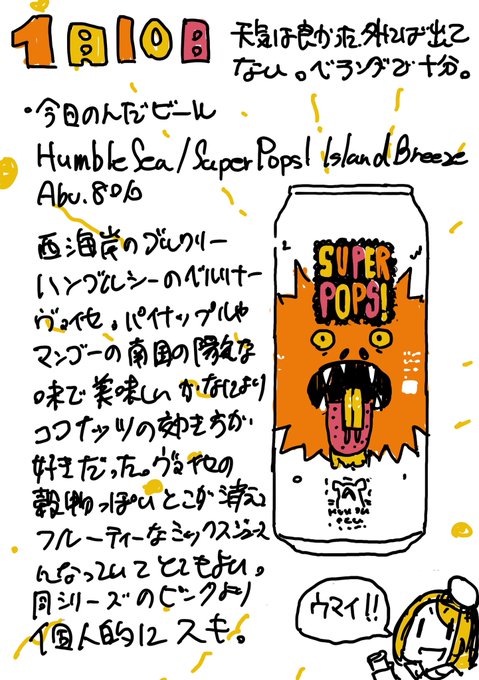 1月10日
天気は良かった。外には出て
ない。ベランダで十分。
・今日のんだビール
Humble Sea / Super Pops! Island Breeze
Abv. 8.0%
西海岸のブルワリー
ハンブルシーのベルリナー
ヴァイセ。パイナップルや
マンゴーの南国の陽気な
味で美味しい。かなにより
ココナッツの効き方が
好きだった。ヴァイセの
穀物っぽいとこが消え
フルーティーなミックスジュース
んなっていてとてもよい。
同シリーズのピンクより
個人的にスキ。
SUPER
POPS!
ウマイ!!